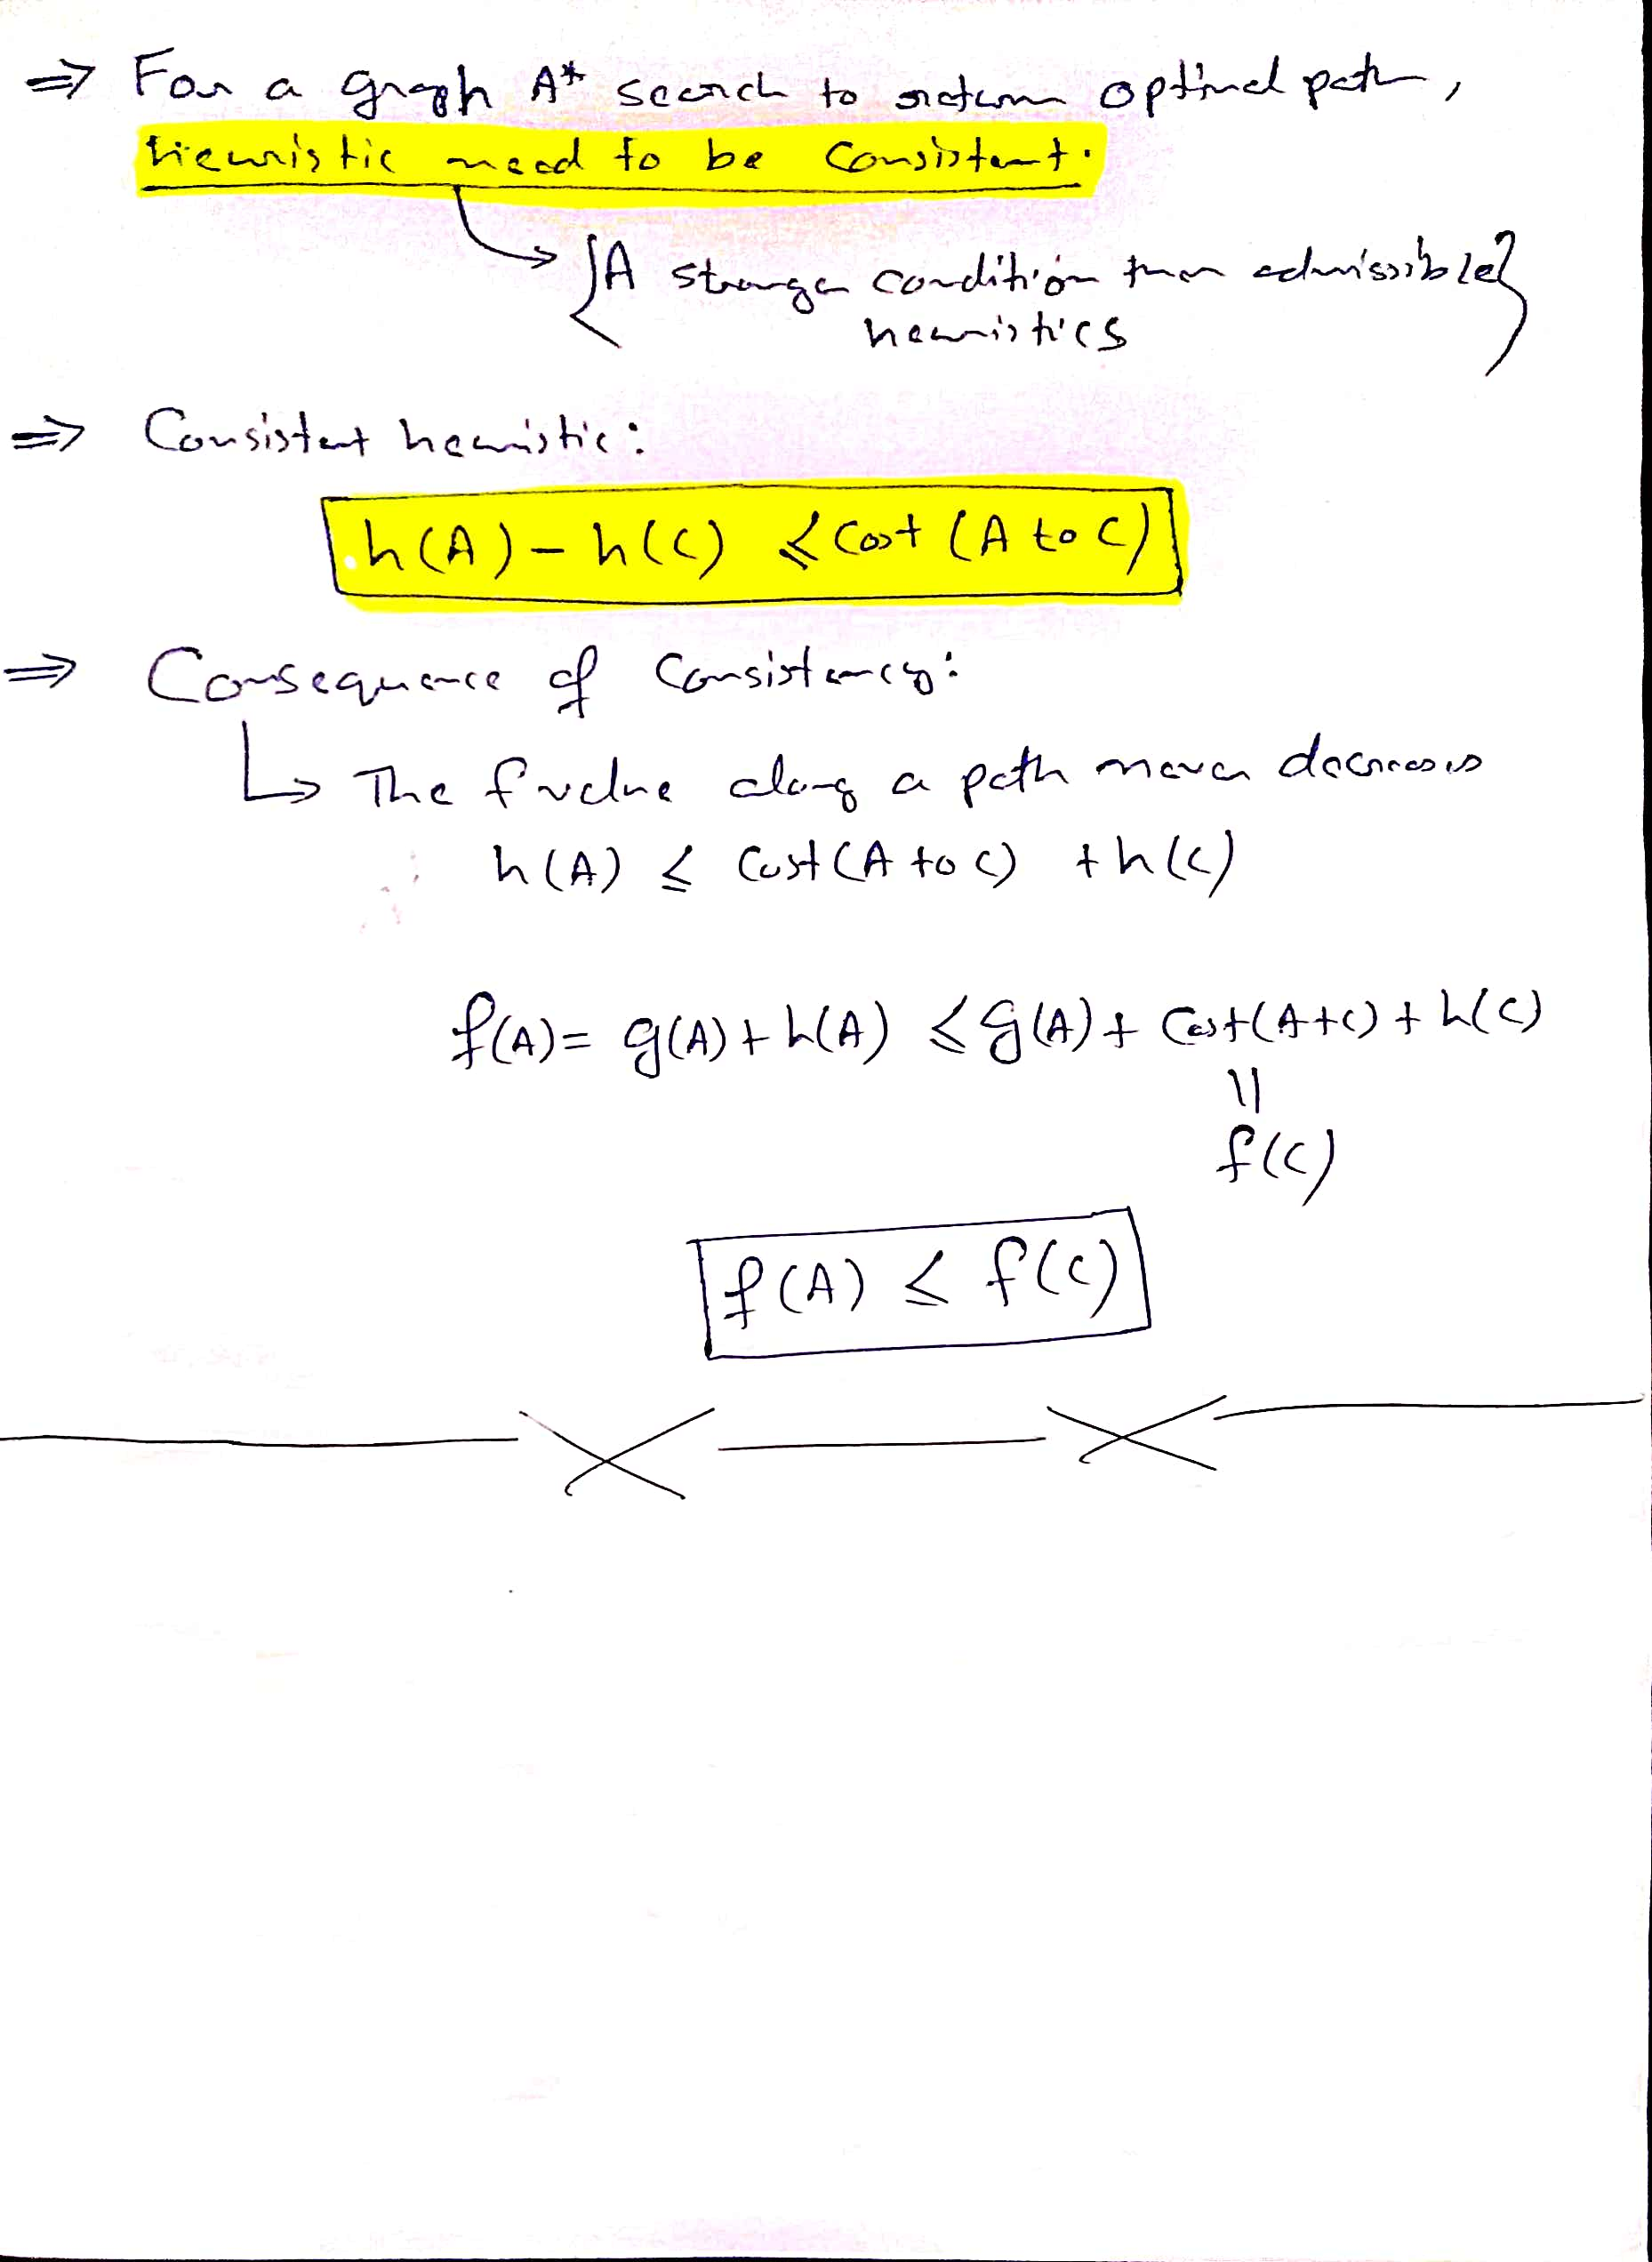 ⇒ For a graph A* search to return optimal path,
heuristic need to be consistent.
{A stronger condition than admissible}
heuristics
⇒ Consistent heuristic:
h(A) - h(C) ≤ Cost (A to C)
⇒ Consequence of Consistency:
↳ The f value along a path never decreases
h(A) ≤ Cost (A to C) + h(C)
f(A) = g(A) + h(A) ≤ g(A) + Cost(A to C) + h(C)
||
f(C)
f(A) ≤ f(C)